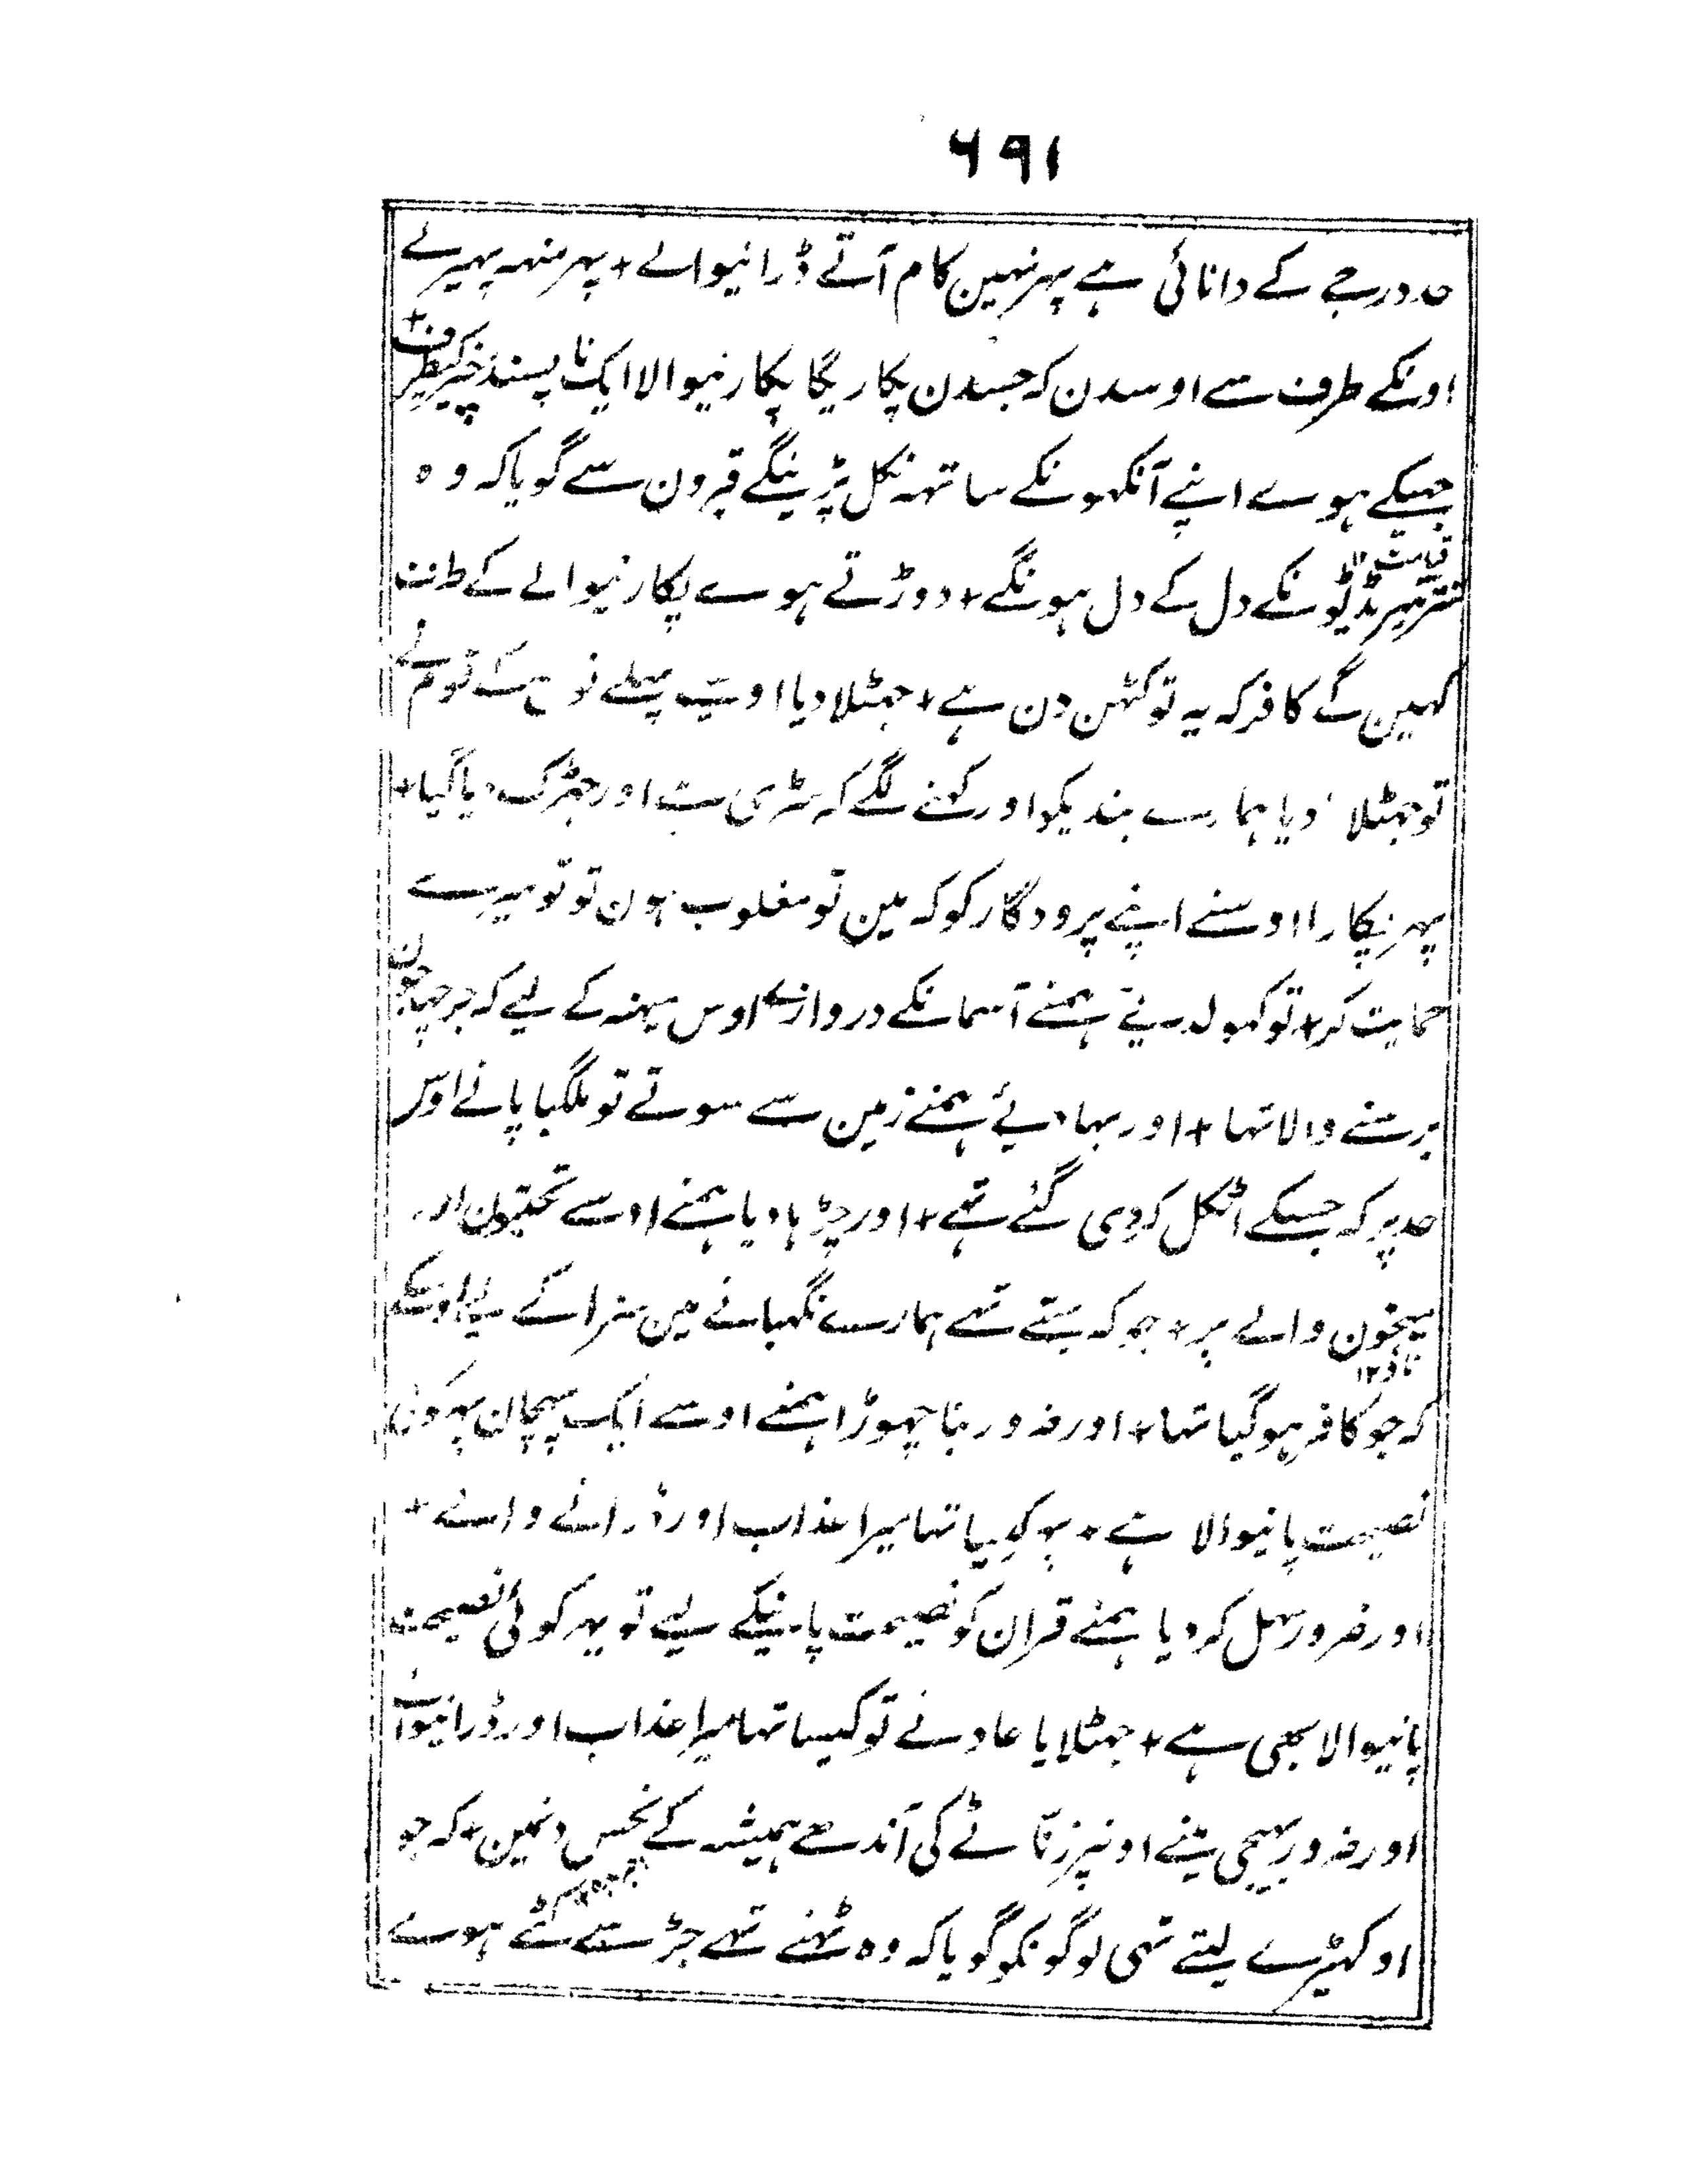 ۶۹۱
حد درجے کے دانائی ہے پہر نہین کام آتے ڈرانیوالے + پہر منہہ پہیر لے
اونکے طرف سے اوسدن کہ جسدن پکاریگا پکارنیوالا ایک ناپسند چیز کیطرف +
جہکے ہوے اپنے آنکہونکے ساتہہ نکل پڑینگے قبرون سے گویاکہ وہ
قیامت
ٹڈیونکے دل کے دل ہونگے + دوڑتے ہوے پکارنیوالے کے طرف
کہین گے کافر کہ یہ تو کٹہن دن ہے + جہٹلا دیا اونسے پہلے نوح کے قوم نے
تو جہٹلا دیا ہمارے بندیکو اور کہنے لگے کہ سڑی ہے اور جہڑک دیا گیا +
پہر پکارا اوسنے اپنے پرودگار کو کہ مین تو مغلوب ہون تو تو میرے
حمایت کر + تو کہولدیے ہمنے آسمانکے دروازے اوس مینہہ کے لیے کہ جو
برسنے والا تہا + اور بہادیے ہمنے زمین سے سوتے تو ملگیا پانے اوس
حد پر کہ جسکے اٹکل کردی گئے تہے + اور چڑہا دیا ہمنے اوسے تختون اور
میخون والے پر + جو کہ بہتے تہے ہمارے نگہبانے مین سزا کے لیے اوسکے
ناؤ ۱۲
کہ جو کافر ہوگیا تہا + اور ضرور بنا چہوڑا ہمنے اوسے ایک پہچان پہر کوئی
نصیحت پانیوالا ہے + پہر کیسا تہا میرا عذاب اور ڈرانے والے +
اور ضرور سہل کردیا ہمنے قران کو نصیحت پانیکے لیے تو پہر کوئی نصیحت
پانیوالا بہی ہے + جہٹلایا عاد نے تو کیسا تہا میرا عذاب اور ڈرانیوالے
اور ضرور بہیجی ہمنے اونپر زنّاٹے کی آندہے ہمیشہ کے نحس دنمین + کہ جو
اوکہیڑے لیتے تہی لوگونکو گویاکہ وہ ٹہنے تہے جڑ سے کٹے ہوے